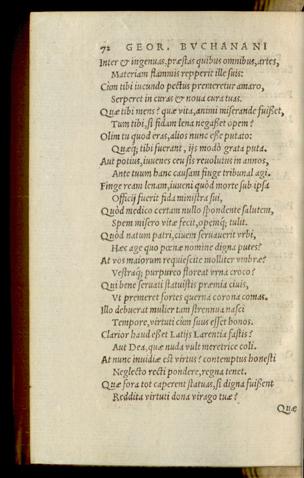 72 GEOR. BVCHANANI
Inter & ingenuas, præstas quibus omnibus, artes,
Materiam flammis repperit ille suis:
Cùm tibi iucundo pectus premeretur amaro,
Serperet in curas & noua cura tuas.
Quæ tibi mens? quæ vita, animi miserande fuisset,
Tum tibi, si fidam lena negasset opem?
Olim tu quod eras, alios nunc esse putato:
Quæq; tibi fuerant, ijs modò grata puta.
Aut potius, iuuenes ceu sis reuolutus in annos,
Ante tuum hanc causam finge tribunal agi.
Finge ream lenam, iuueni quòd morte sub ipsa
Officij fuerit fida ministra sui,
Quòd medico certam nullo spondente salutem,
Spem misero vitæ fecit, opemq; tulit.
Quòd natum patri, ciuem seruauerit vrbi,
Hæc age quo pœnæ nomine digna putes?
At vos maiorum requiescite molliter vmbræ?
Vestraq; purpureo floreat vrna croco?
Qui bene seruati statuistis præmia ciuis,
Vt premeret fortes querna corona comas.
Illo debuerat mulier tam strennua nasci
Tempore, virtuti cùm suus esset honos.
Clarior haud esset Latijs Larentia fastis?
Aut Dea, quæ nuda vult meretrice coli.
At nunc inuidiæ est virtus? contemptus honesti
Neglecto recti pondere, regna tenet.
Quæ fora tot caperent statuas, si digna fuissent
Reddita virtuti dona virago tuæ?
Quæ